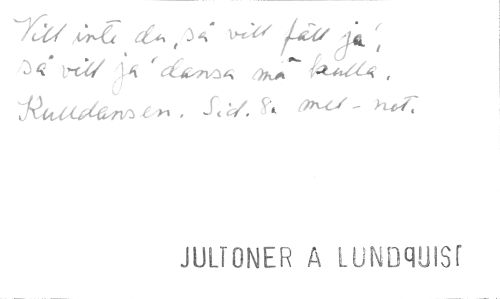 Vill inte du, så vill fäll ja',
så vill ja' dansa mä kulla.
Kulldansen. Sid. 8. mel-not.
JULTONER A LUNDQUIST